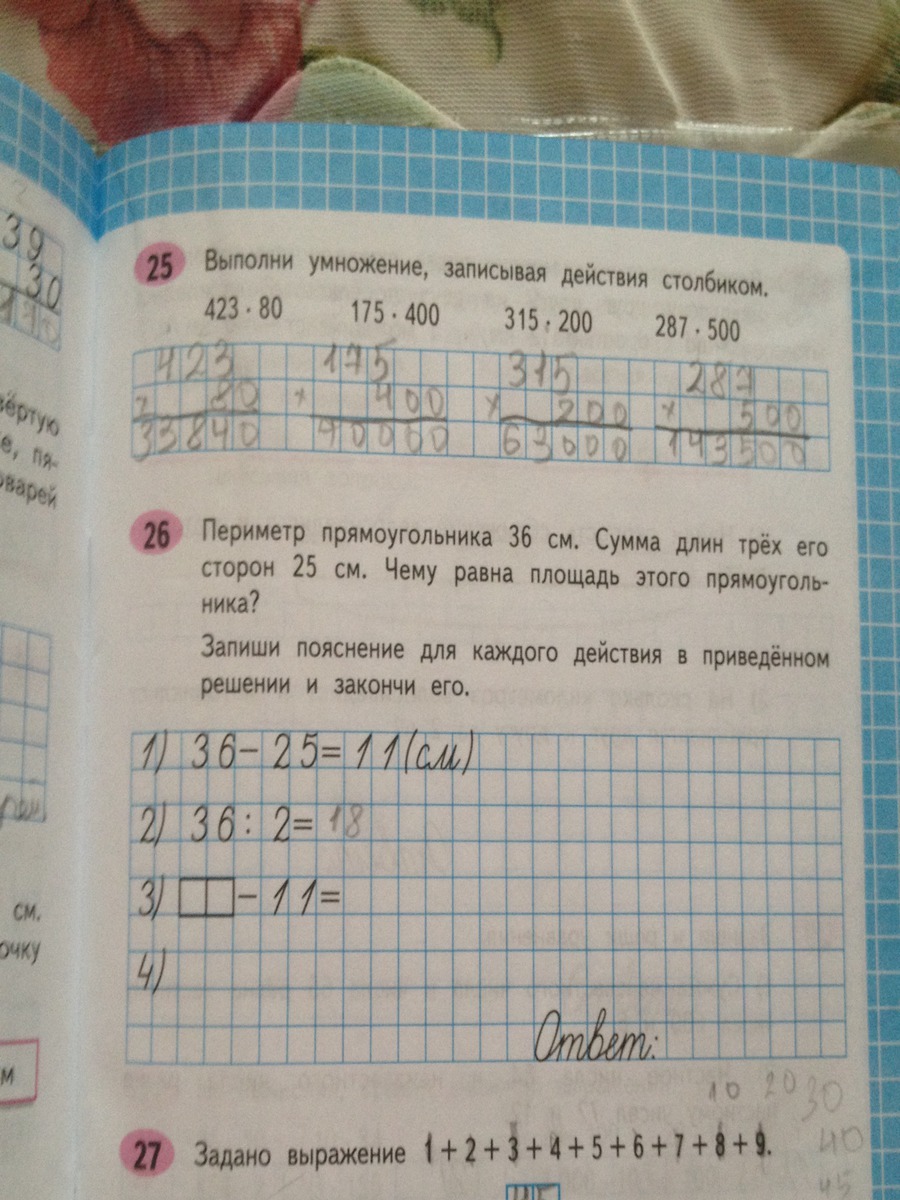 39
30
170
вёртую
е, пя-
оварей
см.
очку
м
25 Выполни умножение, записывая действия столбиком.
423 · 80 175 · 400 315 · 200 287 · 500
423 175 315 287
× 80 × 400 × 200 × 500
33840 70000 63000 143500
26 Периметр прямоугольника 36 см. Сумма длин трёх его
сторон 25 см. Чему равна площадь этого прямоуголь-
ника?
Запиши пояснение для каждого действия в приведённом
решении и закончи его.
1) 36 − 25 = 11 (см)
2) 36 : 2 = 18
3) − 11 =
4)
Ответ:
10 20 30
40
45
27 Задано выражение 1 + 2 + 3 + 4 + 5 + 6 + 7 + 8 + 9.